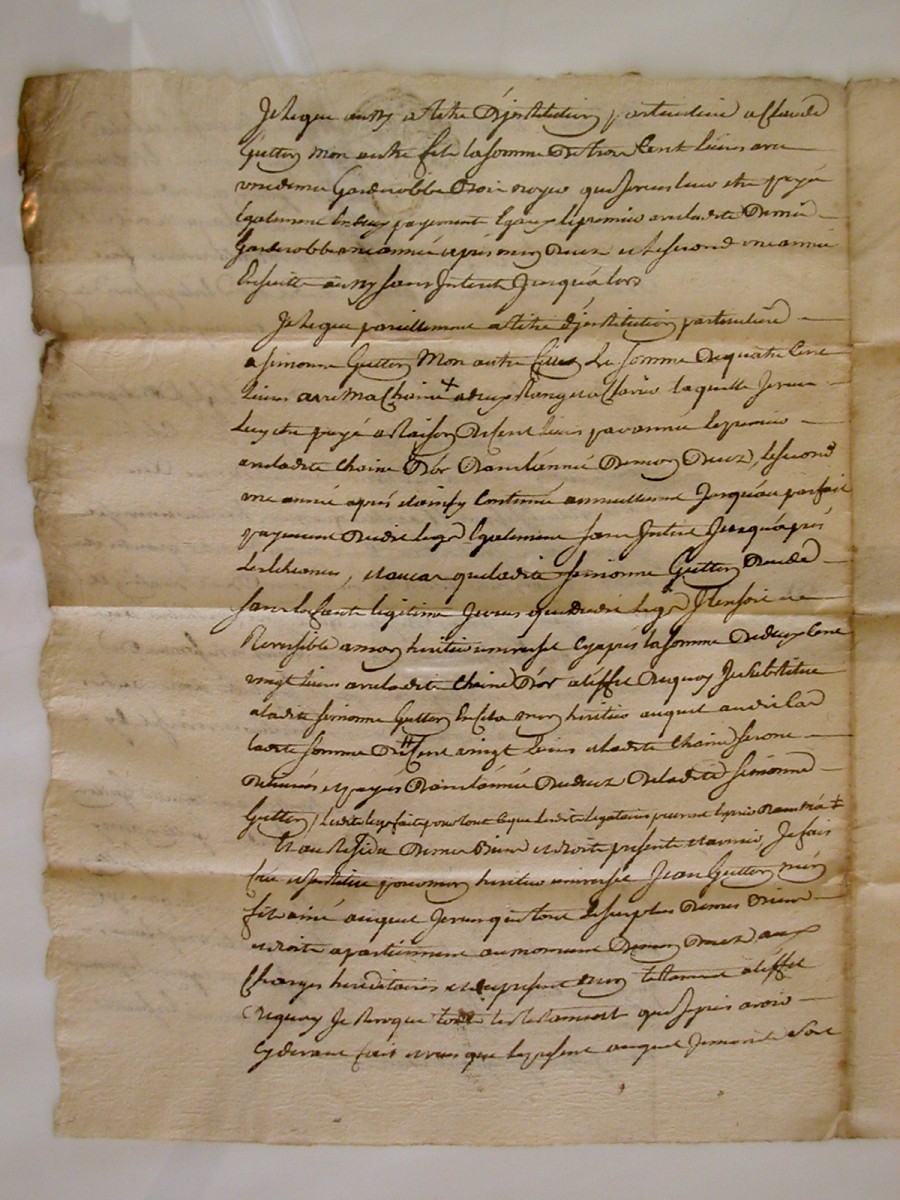 Je legue aussy a titre d'jnstitution particuliere a Claude
Gutton mon autre fils la somme de trois cent livres avec
une demie Garderobbe bois noyer que je veux luy etre payé
Egalement en deux payements Egaux le premier avec ladite demie
Garderobbe une année après mon deces et le second une année
Ensuitte aussy sans Interets Jusqu'alors
Je legue pareillement a titre d'jnstitution particuliere
a Simonne Gutton mon autre fille la somme de quatre cent
livres avec ma Chaine + a deux Rangs a Clavier laquelle Je veux
luy etre payé a Raison de cent livres par année le premier
avec ladite Chaine d'or dans l'année de mon deces, le second
une année après et ainsy Continué annuellement Jusqu'au parfait
payement dudit legs Egalement sans Interet Jusqu'après
les Echeances, et au cas que ladite Simonne Gutton decede
sans Enfants legitimes Je veux que dudit legs Il en soit
Reversible a mon heritier universel cy après la somme de deux cent
vingt livres avec ladite Chaine d'or a l'effet de quoy Je substitue
a ladite Simonne Gutton En cela mon heritier auquel audit cas
ladite somme de cent vingt livres et ladite Chaine seront
delivrés et payés dans l'année du deces de ladite Simonne
Gutton / Lesdits legs faits pour tout ce que lesdits legataires peuvent
Et au Residu de mes Biens et droits présents et avenir, Je fais
cree et institue pour mon heritier universel Jean Gutton mon
fils ainé auquel Je veux que tout le surplus de mes Biens
et droits apartiennent au moment de mon deces, aux
Charges hereditaires et du present mon testament a l'effet
de quoy Je Revoque tous les testaments que Je puis avoir
cy devant fait et veux que le present auquel Je